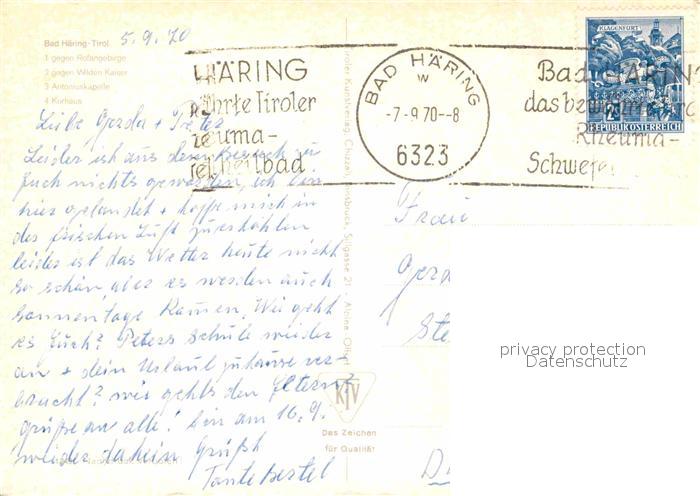 Bad Häring-Tirol 5.9.70
1 gegen Rofangebirge
2 gegen Wilden Kaiser
3 Antoniuskapelle
4 Kurhaus
HÄRING
ährte Tiroler
euma-
elheilbad
BAD HÄRING
W
-7.-9 70--8
6323
Bad HÄRING
das bewährte
Rheuma-
Schwefel
KLAGENFURT
REPUBLIK ÖSTERREICH
Liebe Gerda + Peter
Leider ist aus dem Besuch zu
Euch nichts geworden, ich bin
hier gelandet + hoffe mich in
der frischen Luft zu erholen
leider ist das Wetter heute nicht
so schön, aber es werden auch
Sonnentage kommen. Wie geht
es Euch? Peters Schule wieder
an + dein Urlaub zuhause ver-
bracht? wie gehts den Eltern?
Grüße an alle! bin am 16.9.
wieder daheim Grüßt
Tante Bertel
Tiroler Kunstverlag Chizzali, Innsbruck, Sillgasse 21
KTV
Das Zeichen
für Qualität
Frau
Gerda
Ste
D
privacy protection
Datenschutz